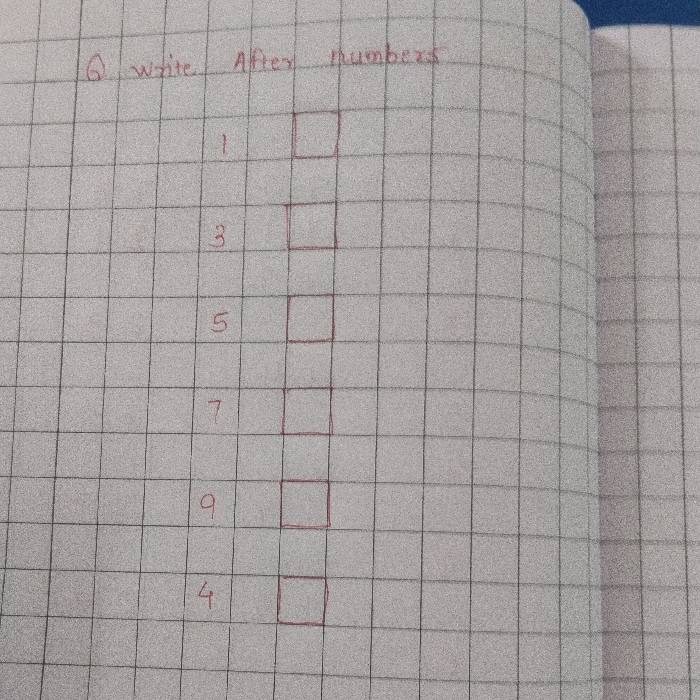 Q Write After numbers
1
3
5
7
9
4